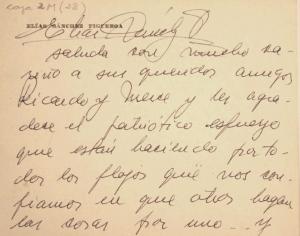 caja 2M (28)
Elías Sánchez F
ELÍAS SÁNCHEZ FIGUEROA
saluda con mucho ca-
riño a sus queridos amigos
Ricardo y Merce y les agra-
dece el patriótico esfuerzo
que están haciendo por to-
dos los flojos que nos con-
fiamos en que otros hagan
las cosas por uno... y